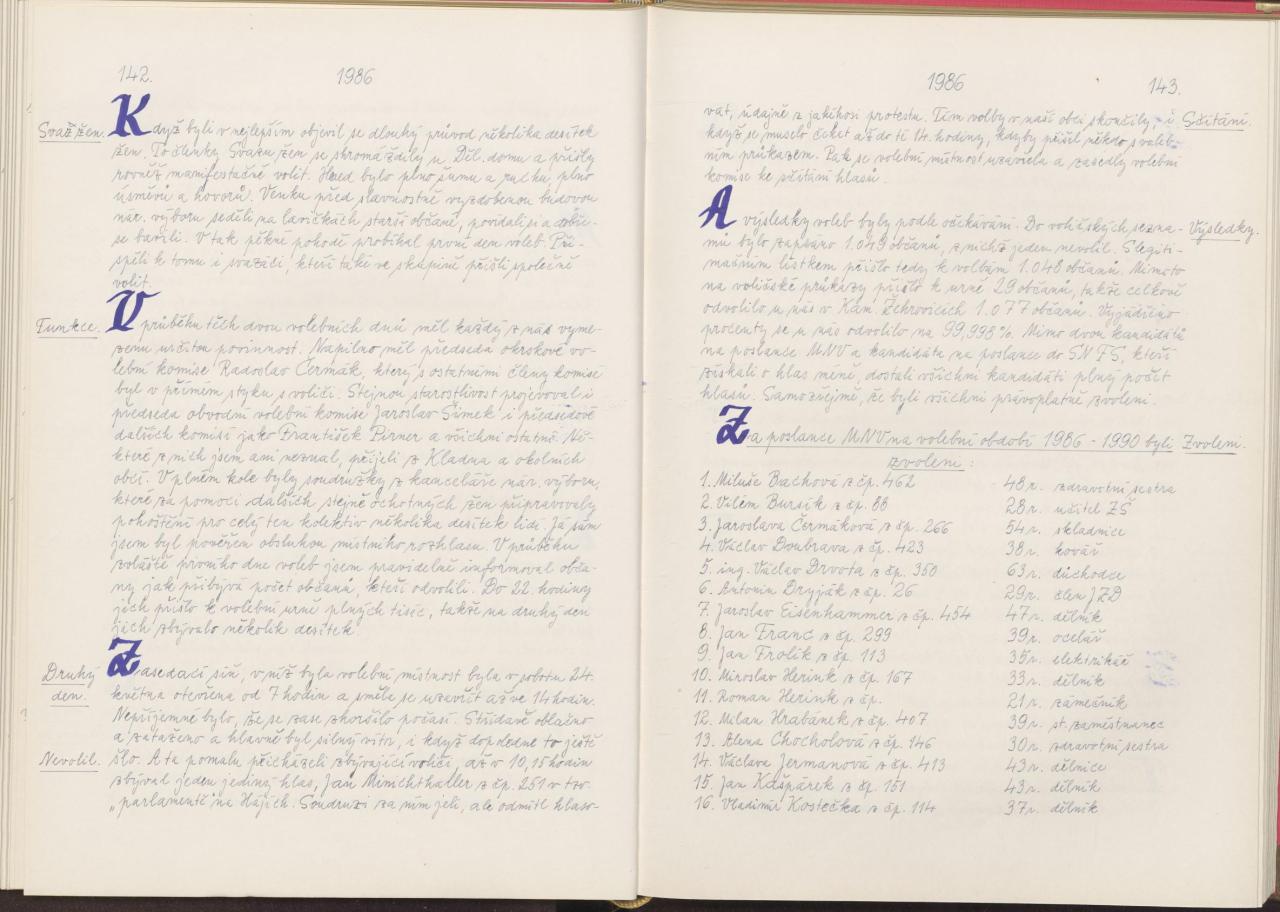 142.
1986
Svaz žen.
Když byli v nejlepším objevil se dlouhý průvod několika desítek
žen. To členky Svazu žen se shromáždily u Děl. domu a přišly
rovněž manifestačně volit. Hned bylo plno šumu a ruchu, plno
úsměvů a hovorů. Venku před slavnostně vyzdobenou budovou
nár. výboru seděli na lavičkách starší občané, povídali si a dobře
se bavili. V tak pěkné pohodě probíhal první den voleb. Při-
spěli k tomu i svazáci, kteří také ve skupině přišli společně
volit.
Funkce.
V průběhu těch dvou volebních dnů měl každý z nás vyme-
zenu určitou povinnost. Napilno měl předseda okrskové vo-
lební komise Radoslav Čermák, který s ostatními členy komise
byl v přímém styku s voliči. Stejnou starostlivost projevoval i
předseda obvodní volební komise Jaroslav Šimek i předsedové
dalších komisí jako František Pirner a všichni ostatní. Ně-
které z nich jsem ani neznal, přijeli z Kladna a okolních
obcí. V plném kole byly soudružky z kanceláře nár. výboru,
které za pomoci dalších, stejně ochotných žen připravovaly
pohoštění pro celý ten kolektiv několika desítek lidí. Já sám
jsem byl pověřen obsluhou místního rozhlasu. V průběhu
zvláště prvního dne voleb jsem pravidelně informoval obča-
ny jak přibývá počet občanů, kteří odvolili. Do 22. hodiny
jich přišlo k volební urně plných tisíc, takže na druhý den
jich zbývalo několik desítek.
Druhý
den.
Zasedací síň, v níž byla volební místnost byla v sobotu 24.
května otevřena od 7 hodin a směla se uzavřít až ve 14 hodin.
Nepříjemné bylo, že se zase zhoršilo počasí. Střídavě oblačno
a zataženo a hlavně byl silný vítr, i když dopoledne to ještě
Nevolil.
šlo. A ta pomalu přicházeli zbývající voliči, až v 10,15 hodin
zbýval jeden jediný hlas, Jan Minichthaller z čp. 251 v tzv.
„parlamentě" na Hájích. Soudruzi za ním jeli, ale odmítl hlaso-
1986
143.
vat, údajně z jakéhosi protestu. Tím volby v naší obci skončily, i
Sčítání.
když se muselo čekat až do té 14. hodiny, kdyby přišel někdo s voleb-
ním průkazem. Pak se volební místnost uzavřela a zasedly volební
komise ke sčítání hlasů.
A výsledky voleb byly podle očekávání. Do voličských sezna-
Výsledky.
mů bylo zapsáno 1.049 občanů, z nichž jeden nevolil. S legiti-
mačním lístkem přišlo tedy k volbám 1.048 občanů. Mimoto
na voličské průkazy přišlo k urně 29 občanů, takže celkově
odvolilo u nás v Kam. Žehrovicích 1.077 občanů. Vyjádřeno
procenty se u nás odvolilo na 99,998%. Mimo dvou kandidátů
na poslance MNV a kandidáta na poslance do SN FS, kteří
získali o hlas méně, dostali všichni kandidáti plný počet
hlasů. Samozřejmě, že byli všichni právoplatně zvoleni.
Za poslance MNV na volební období 1986 - 1990 byli
Zvoleni.
zvoleni:
1. Miluše Bachová z čp. 462 48 r. zdravotní sestra
2. Vilém Bursík z čp. 88 28 r. učitel ZŠ
3. Jaroslava Čermáková z čp. 266 54 r. skladnice
4. Václav Doubrava z čp. 423 38 r. kovář
5. ing. Václav Drvota z čp. 350 63 r. důchodce
6. Antonín Dryják z čp. 26 29 r. člen JZD
7. Jaroslav Eisenhammer z čp. 454 47 r. dělník
8. Jan Franc z čp. 299 39 r. ocelář
9. Jan Frolík z čp. 113 35 r. elektrikář
10. Miroslav Herink z čp. 167 33 r. dělník
11. Roman Herink z čp. 21 r. zámečník
12. Milan Hrabánek z čp. 407 39 r. st. zaměstnanec
13. Alena Chocholová z čp. 146 30 r. zdravotní sestra
14. Václava Jermanová z čp. 413 43 r. dělnice
15. Jan Kašpárek z čp. 151 43 r. dělník
16. Vladimír Kostečka z čp. 114 37 r. dělník